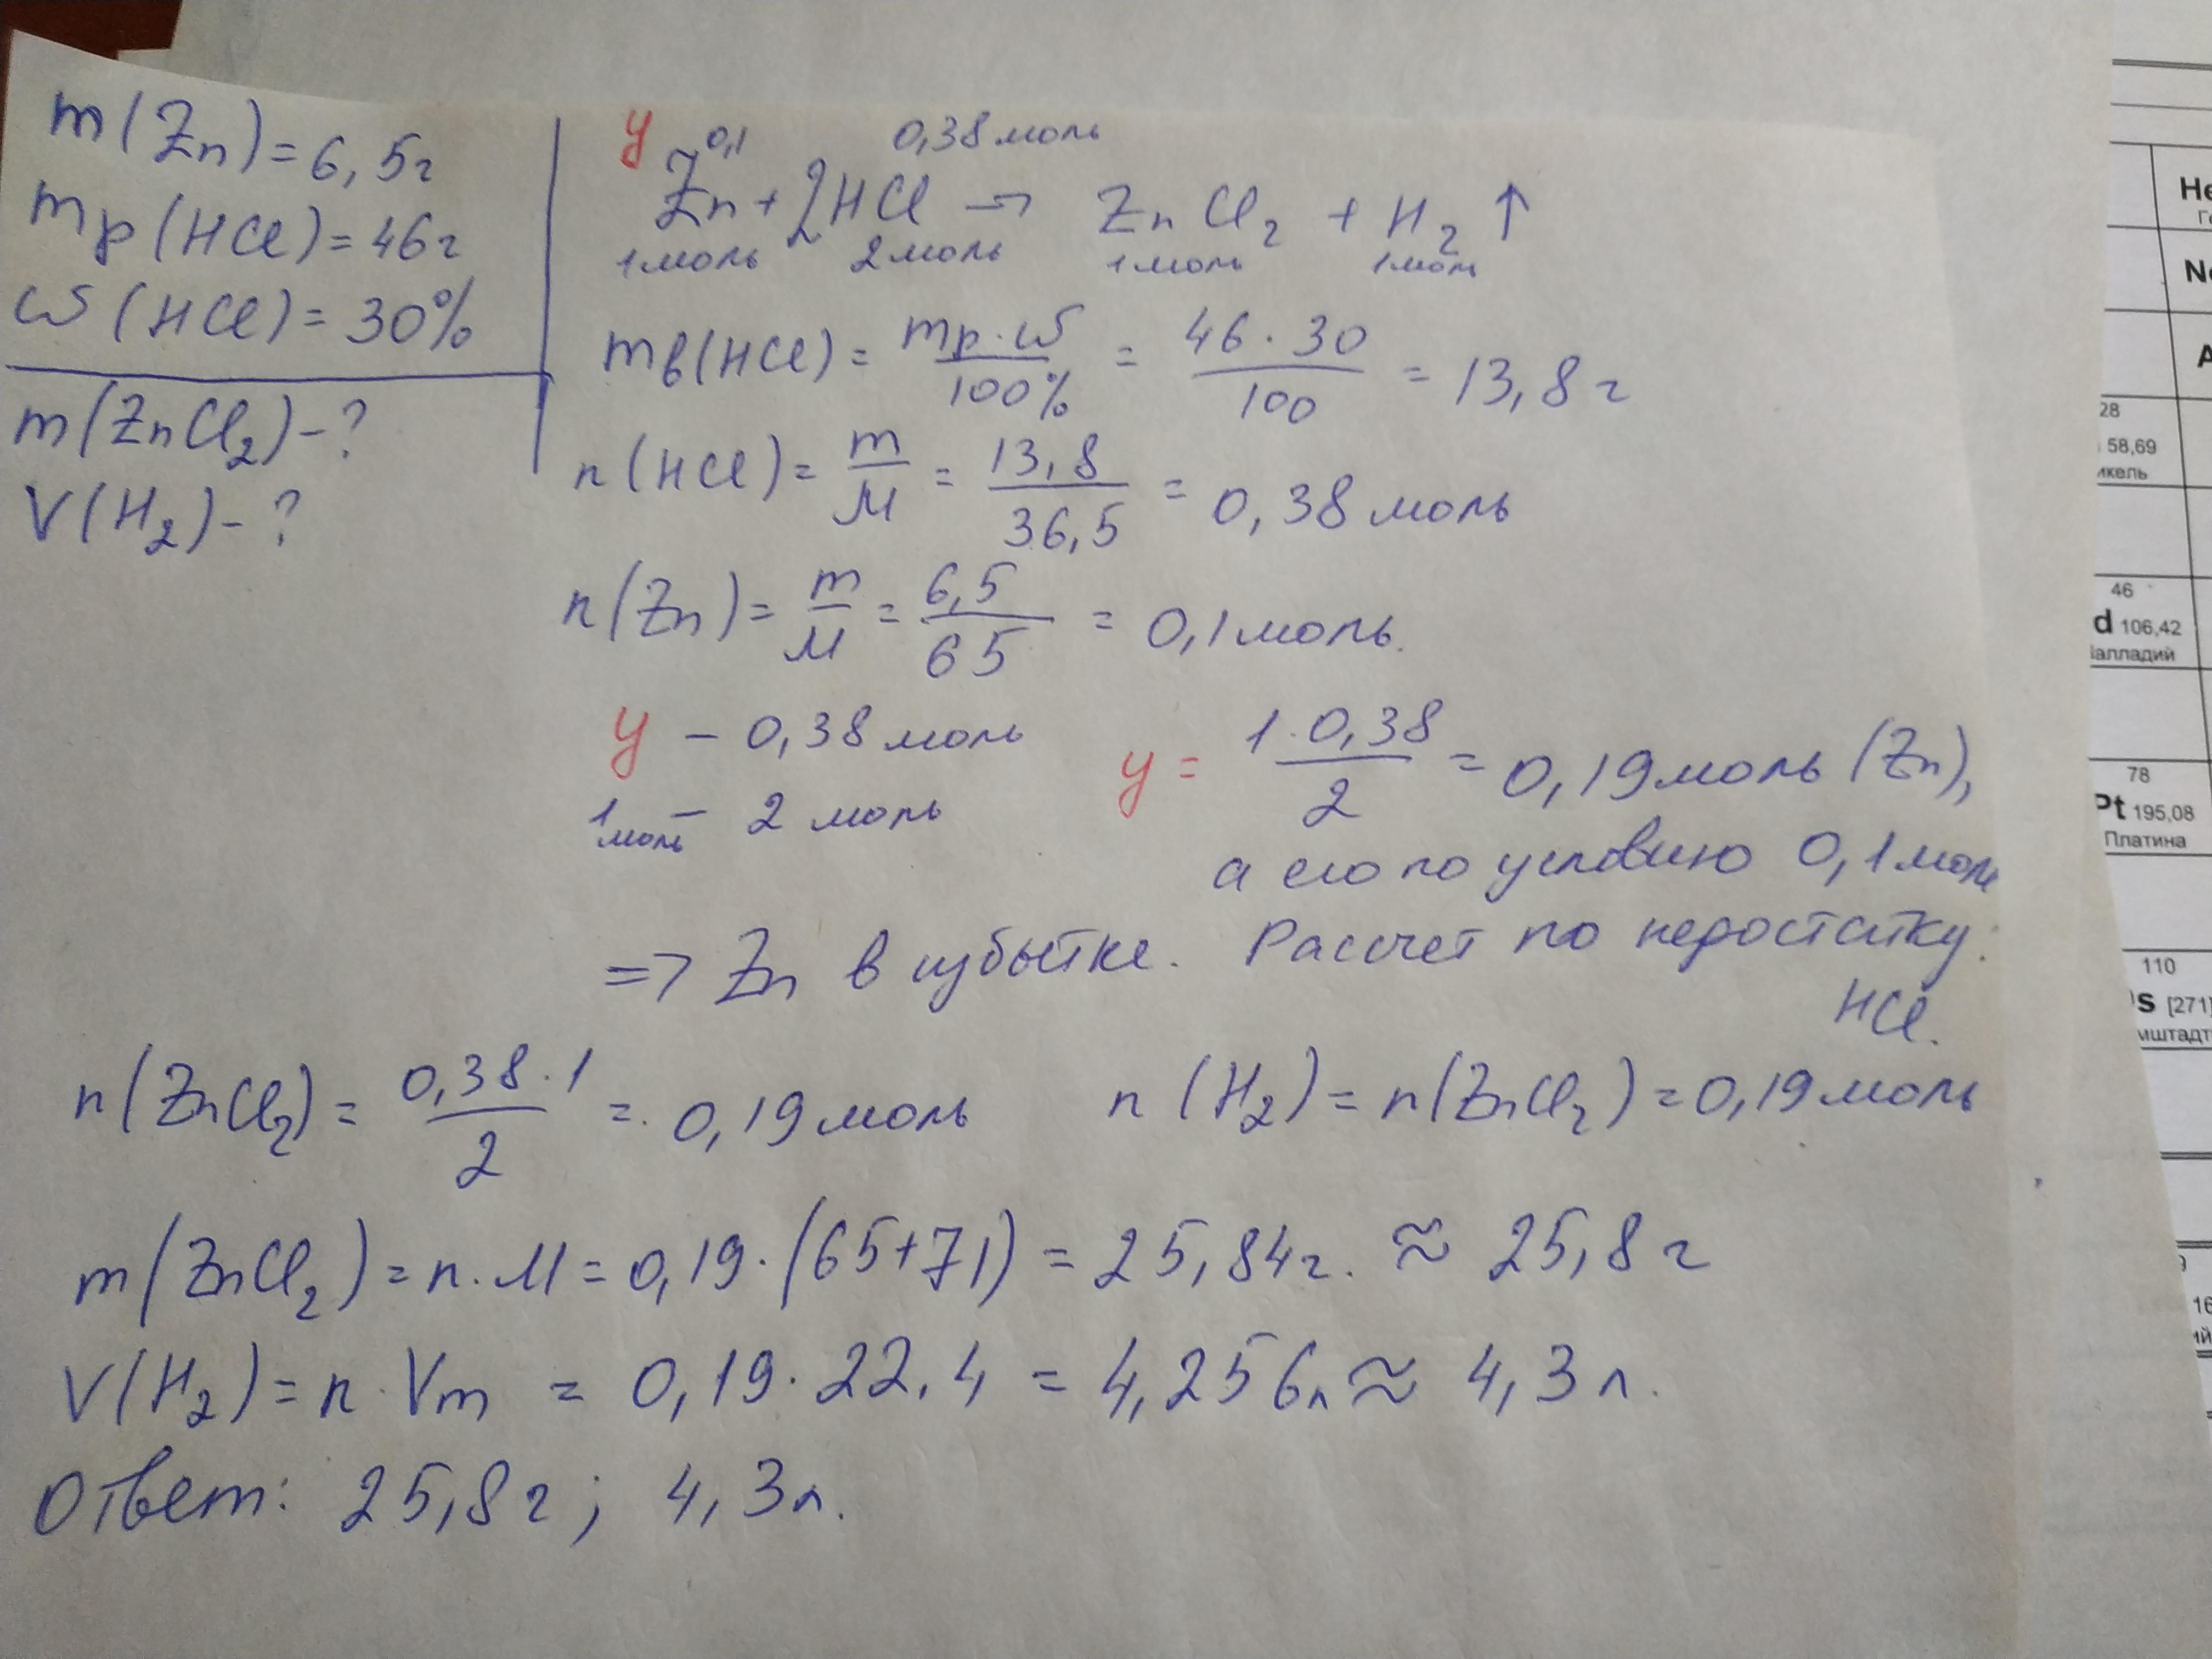 m(Zn) = 6,5г
mр(HCl) = 46г
ω(HCl) = 30%
m(ZnCl₂) - ?
V(H₂) - ?
y 0,1 0,38 моль
Zn + 2HCl → ZnCl₂ + H₂ ↑
1 моль 2 моль 1 моль 1 моль
mв(HCl) = mр · ω / 100% = 46 · 30 / 100 = 13,8 г
n(HCl) = m / M = 13,8 / 36,5 = 0,38 моль
n(Zn) = m / M = 6,5 / 65 = 0,1 моль.
y - 0,38 моль
1 моль - 2 моль
y = 1 · 0,38 / 2 = 0,19 моль (Zn),
а его по условию 0,1 моль
=> Zn в избытке. Рассчет по недостатку:
HCl.
n(ZnCl₂) = 0,38 · 1 / 2 = 0,19 моль
n(H₂) = n(ZnCl₂) = 0,19 моль
m(ZnCl₂) = n · M = 0,19 · (65+71) = 25,84г. ≈ 25,8 г
V(H₂) = n · Vm = 0,19 · 22,4 = 4,256л ≈ 4,3 л.
Ответ: 25,8 г; 4,3 л.
He
Ne
A
28
58,69
икель
46
d 106,42
алладий
78
Pt 195,08
Платина
110
s [271]
мштадт
16